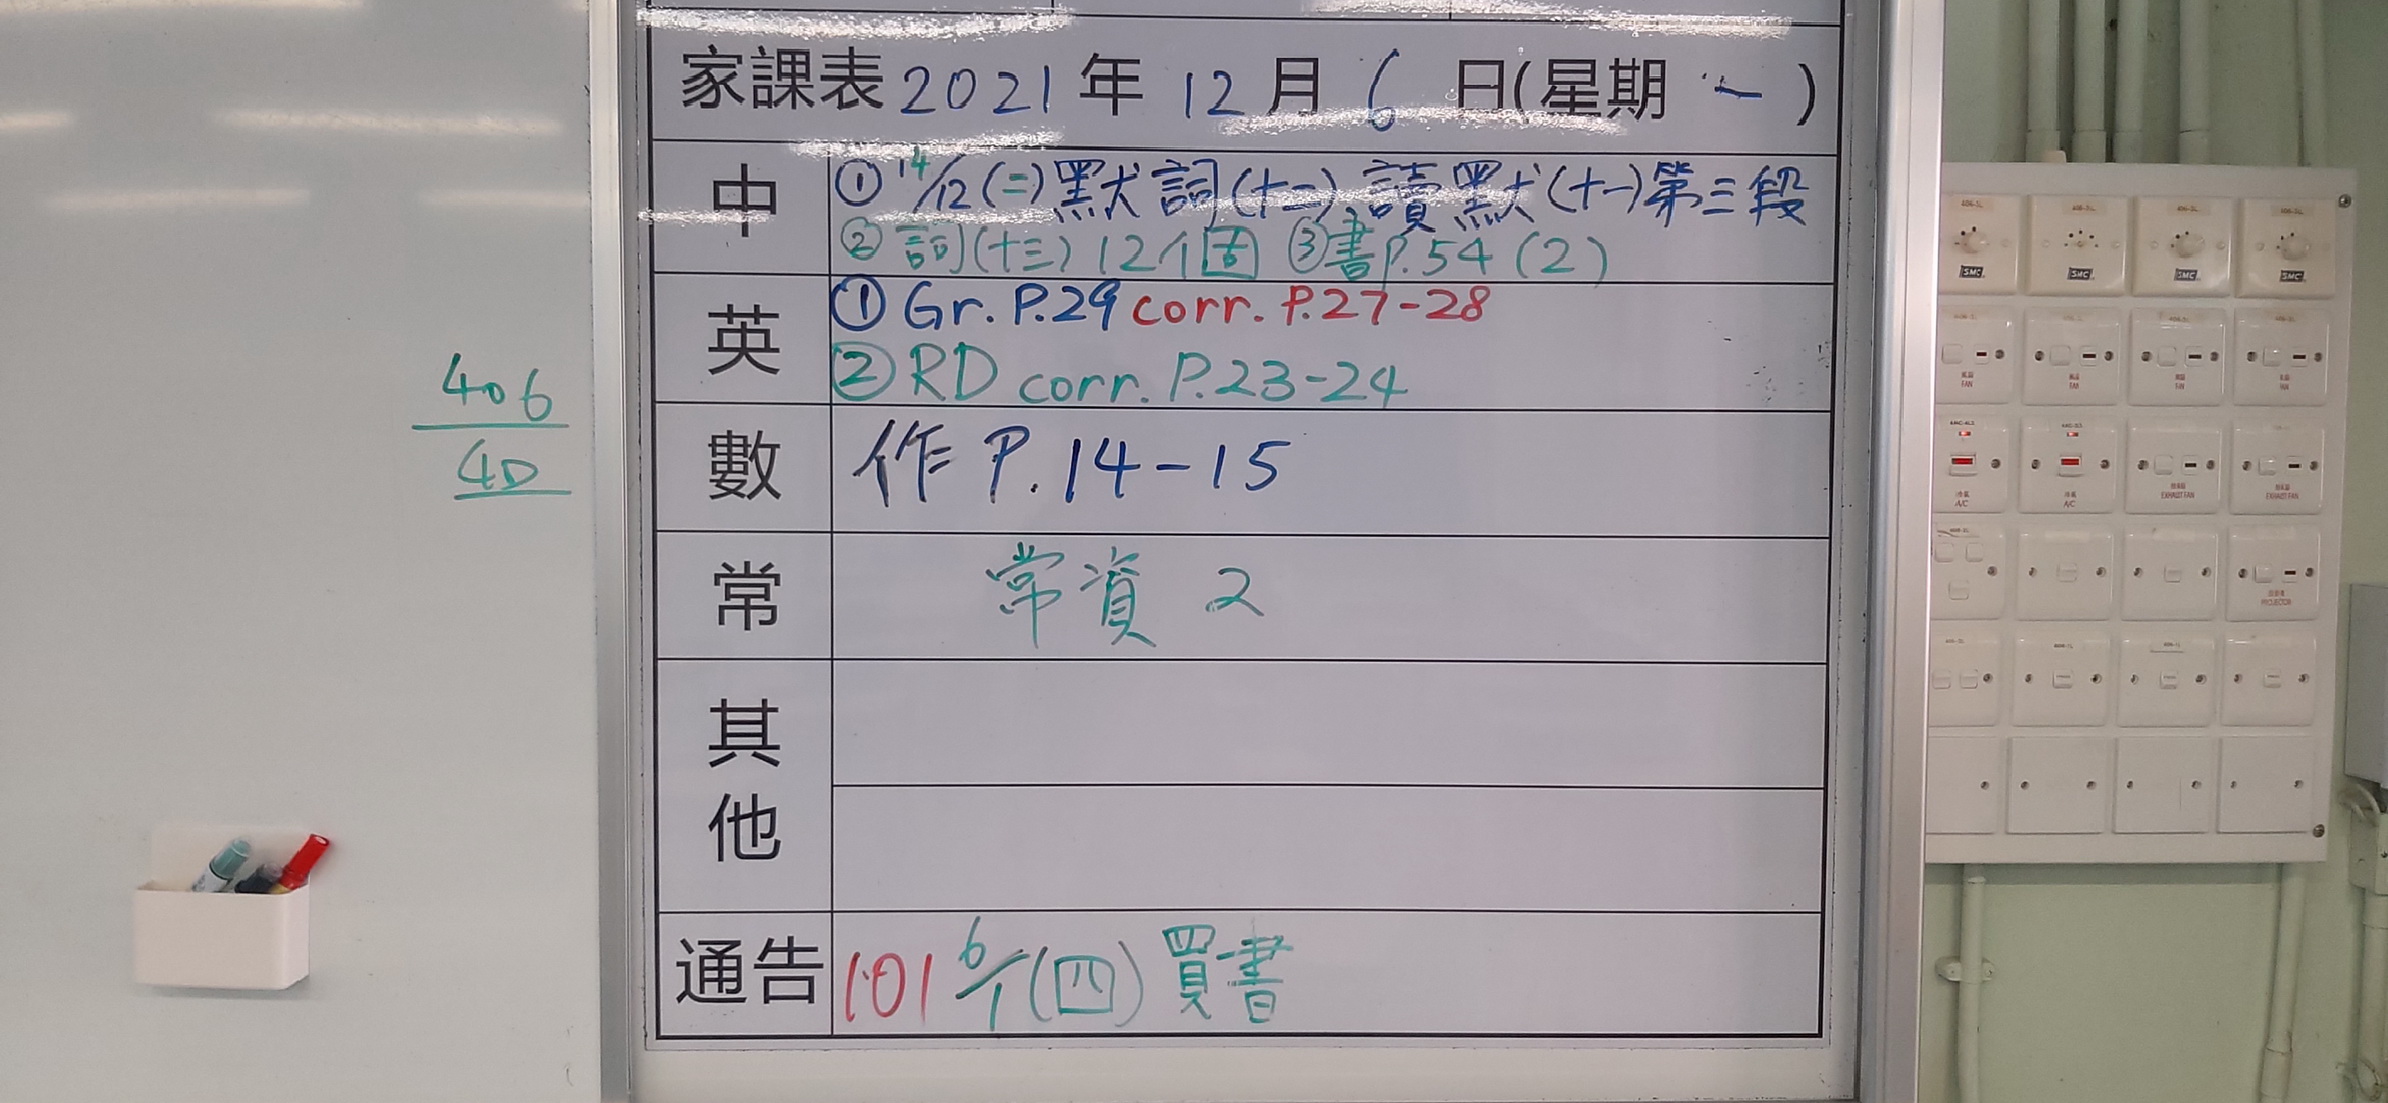 家課表 2021 年 12 月 6 日(星期 一 )
中
① 14/12(二)默詞(十二)、讀默(十一)第三段
② 詞(十三) 12個 ③書P.54 (2)
英
① Gr. P.29 corr. P.27-28
② RD corr. P.23-24
數
作 P.14-15
常
常資 2
其他
通告
101 6/1(四) 買書
406
4D
SMC
SMC
SMC
SMC
FAN
FAN
FAN
FAN
冷氣
A/C
冷氣
A/C
EXHAUST FAN
EXHAUST FAN
PROJECTOR